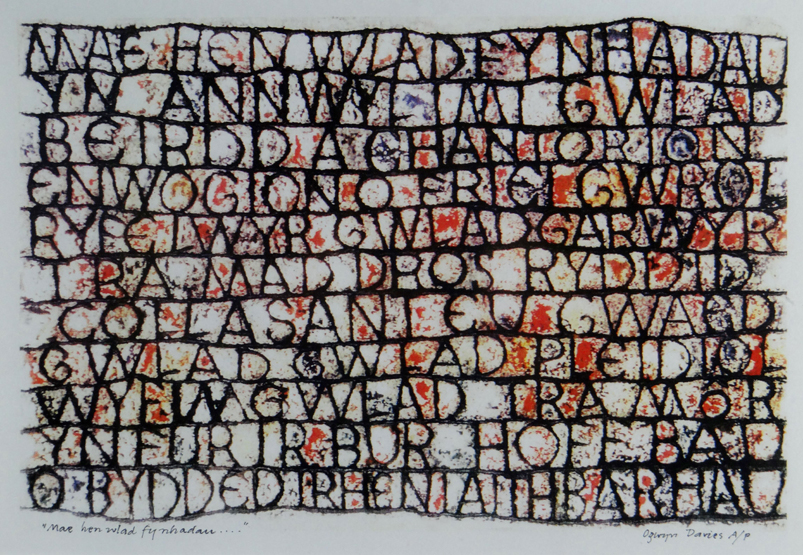 MAE HEN WLAD FY NHADAU
YN ANNWYL I MI GWLAD
BEIRDD A CHANTORION
ENWOGION O FRI EI GWROL
RYFELWYR GWLADGARWYR
TRA MAD DROS RYDDID
COLLASANT EU GWAED
GWLAD GWLAD PLEIDIOL
WYF IM GWLAD TRA MOR
YN FUR IR BUR HOFF BAU
O BYDDED IR HENIAITH BARHAU
"Mae hen wlad fy nhadau...." Ogwyn Davies A/p